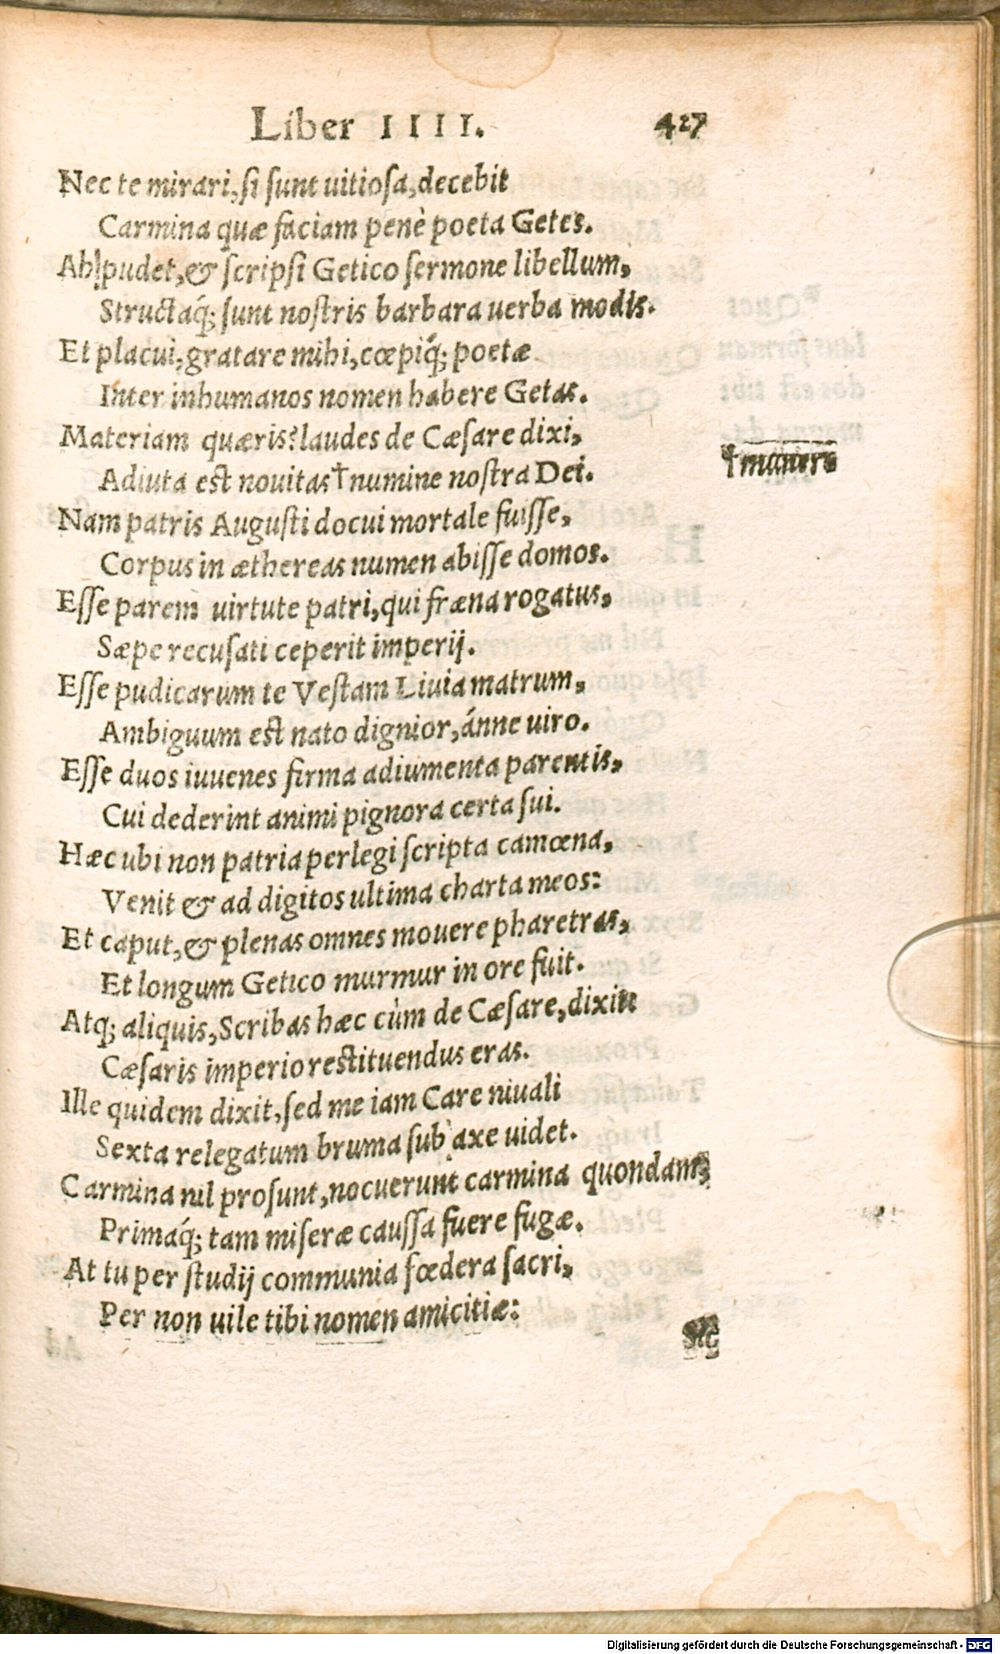 Liber IIII. 427
Nec te mirari, si sunt uitiosa, decebit
Carmina quæ faciam penè poeta Getes.
Ah pudet, & scripsi Getico sermone libellum,
Structaq́; sunt nostris barbara uerba modis.
Et placui, gratare mihi, cœpiq́; poetæ
Inter inhumanos nomen habere Getas.
Materiam quæris? laudes de Cæsare dixi,
Adiuta est nouitas † numine nostra Dei. † munere
Nam patris Augusti docui mortale fuisse,
Corpus in æthereas numen abisse domos.
Esse parem uirtute patri, qui fræna rogatus,
Sæpe recusati ceperit imperij.
Esse pudicarum te Vestam Liuia matrum,
Ambiguum est nato dignior, ánne uiro.
Esse duos iuuenes firma adiumenta parentis,
Cui dederint animi pignora certa sui.
Hæc ubi non patria perlegi scripta camœna,
Venit & ad digitos ultima charta meos:
Et caput, & plenas omnes mouere pharetras,
Et longum Getico murmur in ore fuit.
Atq; aliquis, Scribas hæc cùm de Cæsare, dixit
Cæsaris imperio restituendus eras.
Ille quidem dixit, sed me iam Care niuali
Sexta relegatum bruma sub axe uidet.
Carmina nil prosunt, nocuerunt carmina quondam,
Primaq́; tam miseræ caussa fuere fugæ.
At tu per studij communia fœdera sacri,
Per non uile tibi nomen amicitiæ:
Sic
Digitalisierung gefördert durch die Deutsche Forschungsgemeinschaft - DFG